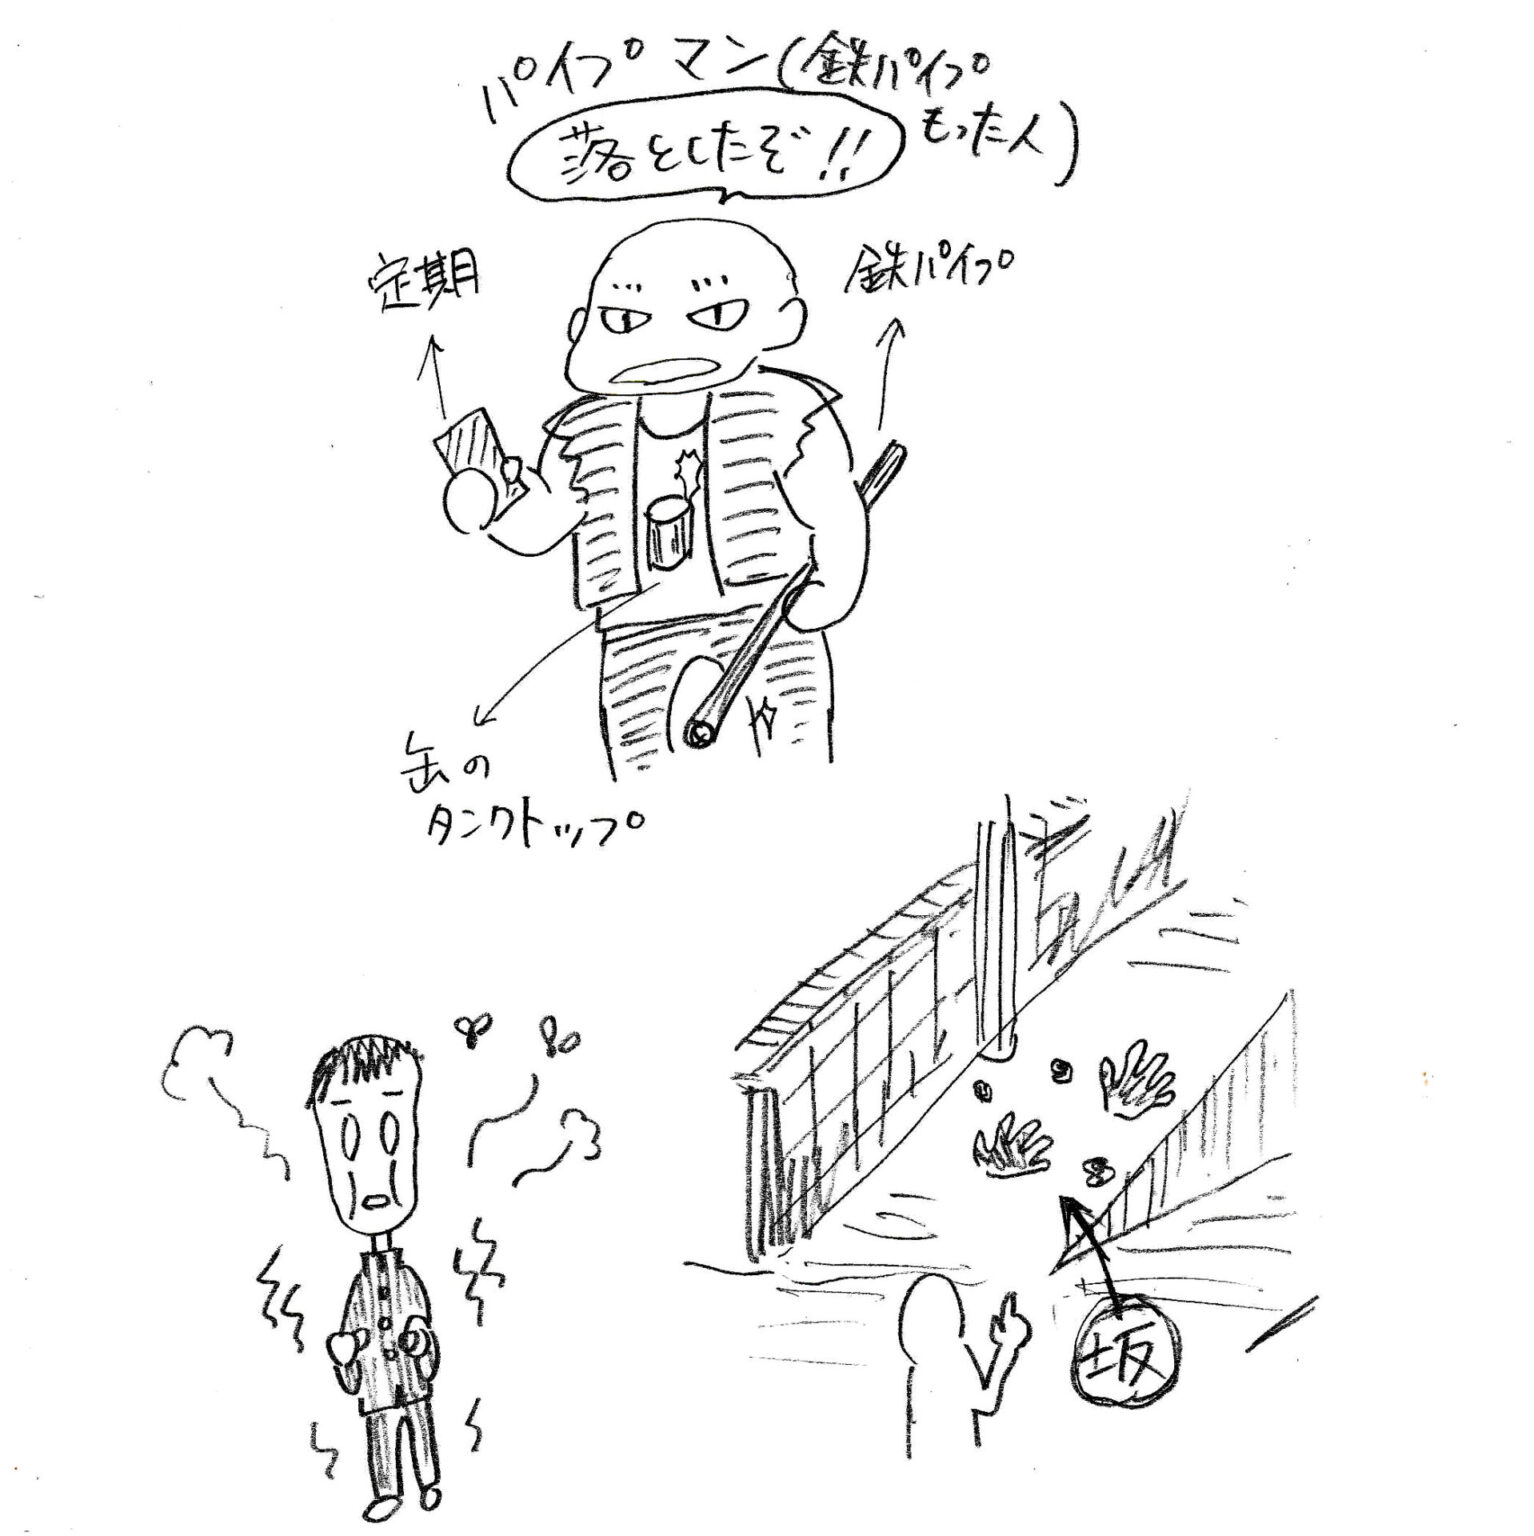 パイプマン(鉄パイプ
もった人)
落としたぞ!!
定期
鉄パイプ
缶の
タンクトップ
坂